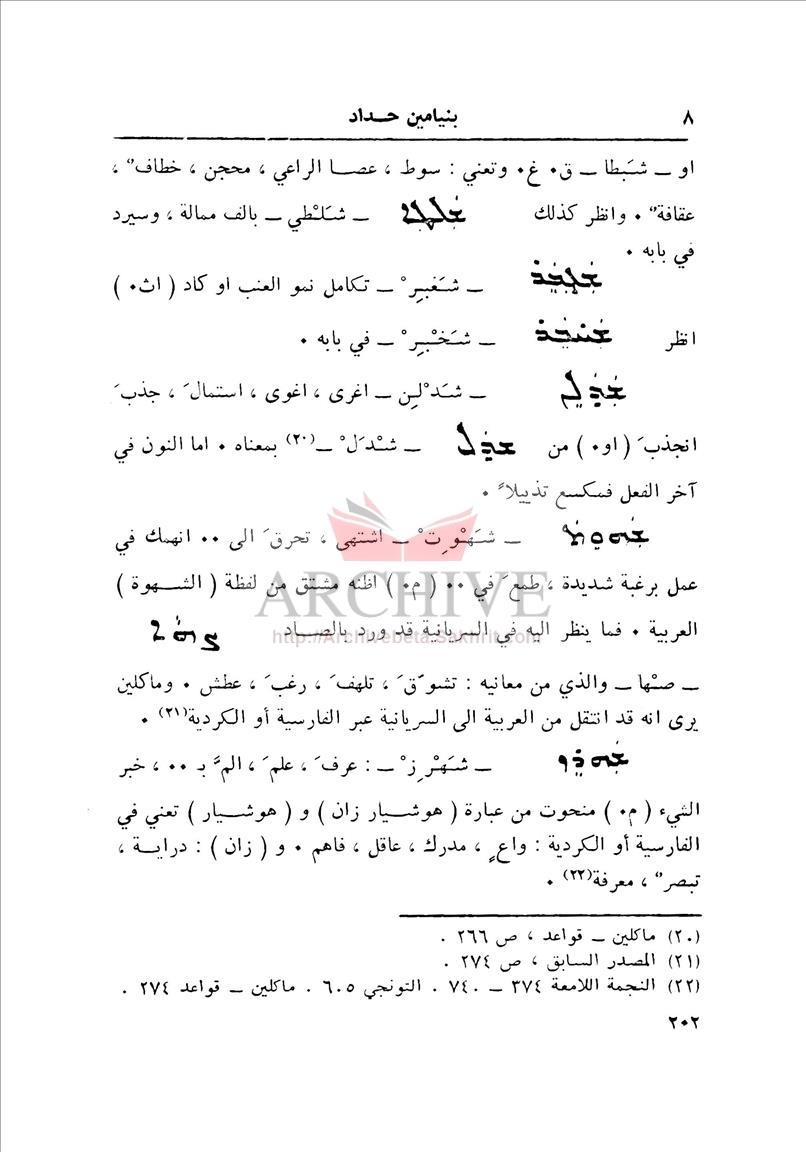 ٨ بنيامين حـداد
او ــ شَبطا ــ ق٠ غ٠ وتعني : سوط ، عصـا الراعي ، محجن ، خطاف ،
عقافة ٠ وانظر كذلك ــ شَلْطي ــ بالف ممالة ، وسيرد
في بابه ٠
ــ شَغبِرْ ــ تكامل نمو العنب او كاد ( اث٠ )
انظر ــ شَخْبِرْ ــ في بابه ٠
ܫܲܕܸܠܢ ــ شَدْلِن ــ اغرى ، اغوى ، استمالَ ، جذبَ
انجذبَ ( او٠ ) من ܫܕܸܠ ــ شْدَلْ ــ(٢٠) بمعناه ٠ اما النون في
آخر الفعل فمكسع تذييلاً ٠
ܫܲܗܘܸܬ ــ شَهْوِتْ ــ اشتهى ، تحرقَ الى ٠٠ انهمك في
عمل برغبة شديدة ، طمعَ في ٠٠ ( م٠ ) اظنه مشتق من لفظة ( الشـهوة )
العربية ٠ فما ينظر اليه في السريانية قد ورد بالصـاد ܨܗܐ
ــ صْها ــ والذي من معانيه : تشوّقَ ، تلهفَ ، رغبَ ، عطش ٠ وماكلين
يرى انه قد انتقل من العربية الى السريانية عبر الفارسية أو الكردية(٢١) ٠
ܫܲܗܪܸܙ ــ شَهْرِزْ ــ : عرفَ ، علمَ ، المَّ بـ ٠٠ ، خبر
الشيء ( م٠ ) منحوت من عبارة ( هوشـيار زان ) و ( هوشـيار ) تعني في
الفارسية أو الكردية : واعٍ ، مدرك ، عاقل ، فاهم ٠ و ( زان ) : درايـة ،
تبصر ، معرفة(٢٢) ٠
(٢٠) ماكلين ــ قواعد ، ص ٢٦٦ .
(٢١) المصدر السابق ، ص ٢٧٤ .
(٢٢) النجمة اللامعة ٣٧٤ ــ ٧٤٠ . التونجي ٦٠٥ . ماكلين ــ قواعد ٢٧٤ .
٢٠٢
ARCHIVE
http://Archivebeta.Sakhrit.com